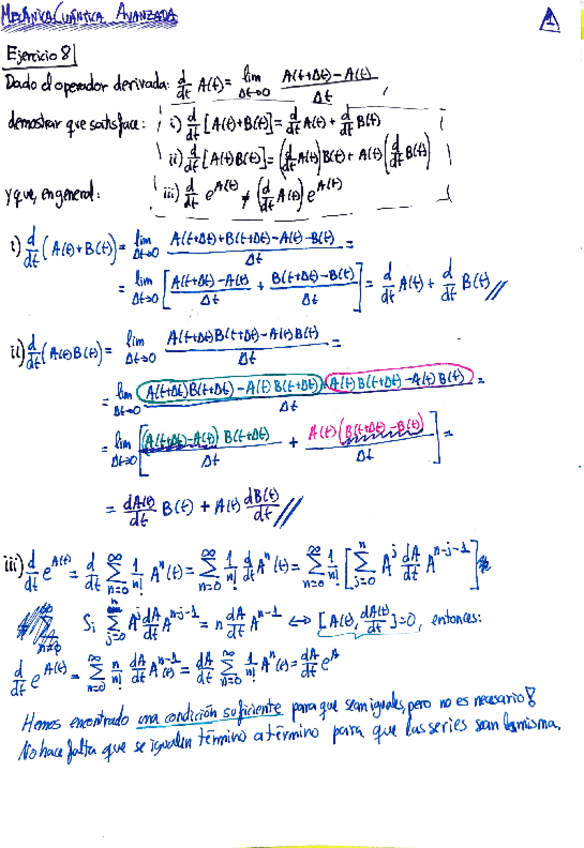 MECÁNICA CUÁNTICA AVANZADA
1
Ejercicio 8
Dado el operador derivada: d/dt A(t) = lim Δt→0 (A(t+Δt) - A(t))/Δt ,
demostrar que satisface: i) d/dt [A(t)+B(t)] = d/dt A(t) + d/dt B(t)
ii) d/dt [A(t)B(t)] = (d/dt A(t)) B(t) + A(t) (d/dt B(t))
Y que, en general: iii) d/dt e^A(t) ≠ (d/dt A(t)) e^A(t)
i) d/dt (A(t)+B(t)) = lim Δt→0 (A(t+Δt)+B(t+Δt)-A(t)-B(t))/Δt =
= lim Δt→0 [(A(t+Δt)-A(t))/Δt + (B(t+Δt)-B(t))/Δt] = d/dt A(t) + d/dt B(t) //
ii) d/dt (A(t)B(t)) = lim Δt→0 (A(t+Δt)B(t+Δt)-A(t)B(t))/Δt =
= lim Δt→0 (A(t+Δt)B(t+Δt) - A(t)B(t+Δt) + A(t)B(t+Δt) - A(t)B(t))/Δt =
= lim Δt→0 [(A(t+Δt)-A(t)) B(t+Δt)/Δt + A(t)(B(t+Δt)-B(t))/Δt] =
= dA(t)/dt B(t) + A(t) dB(t)/dt //
iii) d/dt e^A(t) = d/dt ∑_{n=0}^∞ 1/n! A^n(t) = ∑_{n=0}^∞ 1/n! d/dt A^n(t) = ∑_{n=0}^∞ 1/n! [∑_{j=0}^n A^j dA/dt A^{n-j-1}]
Si ∑_{j=0}^n A^j dA/dt A^{n-j-1} = n dA/dt A^{n-1} ⟺ [A(t), dA(t)/dt] = 0, entonces:
d/dt e^A(t) = ∑_{n=0}^∞ n/n! dA/dt A^{n-1}(t) = dA/dt ∑_{n=0}^∞ 1/n! A^n(t) = dA/dt e^A
Hemos encontrado una condición suficiente para que sean iguales, pero no es necesario!
No hace falta que se igualen término a término para que las series sean la misma.